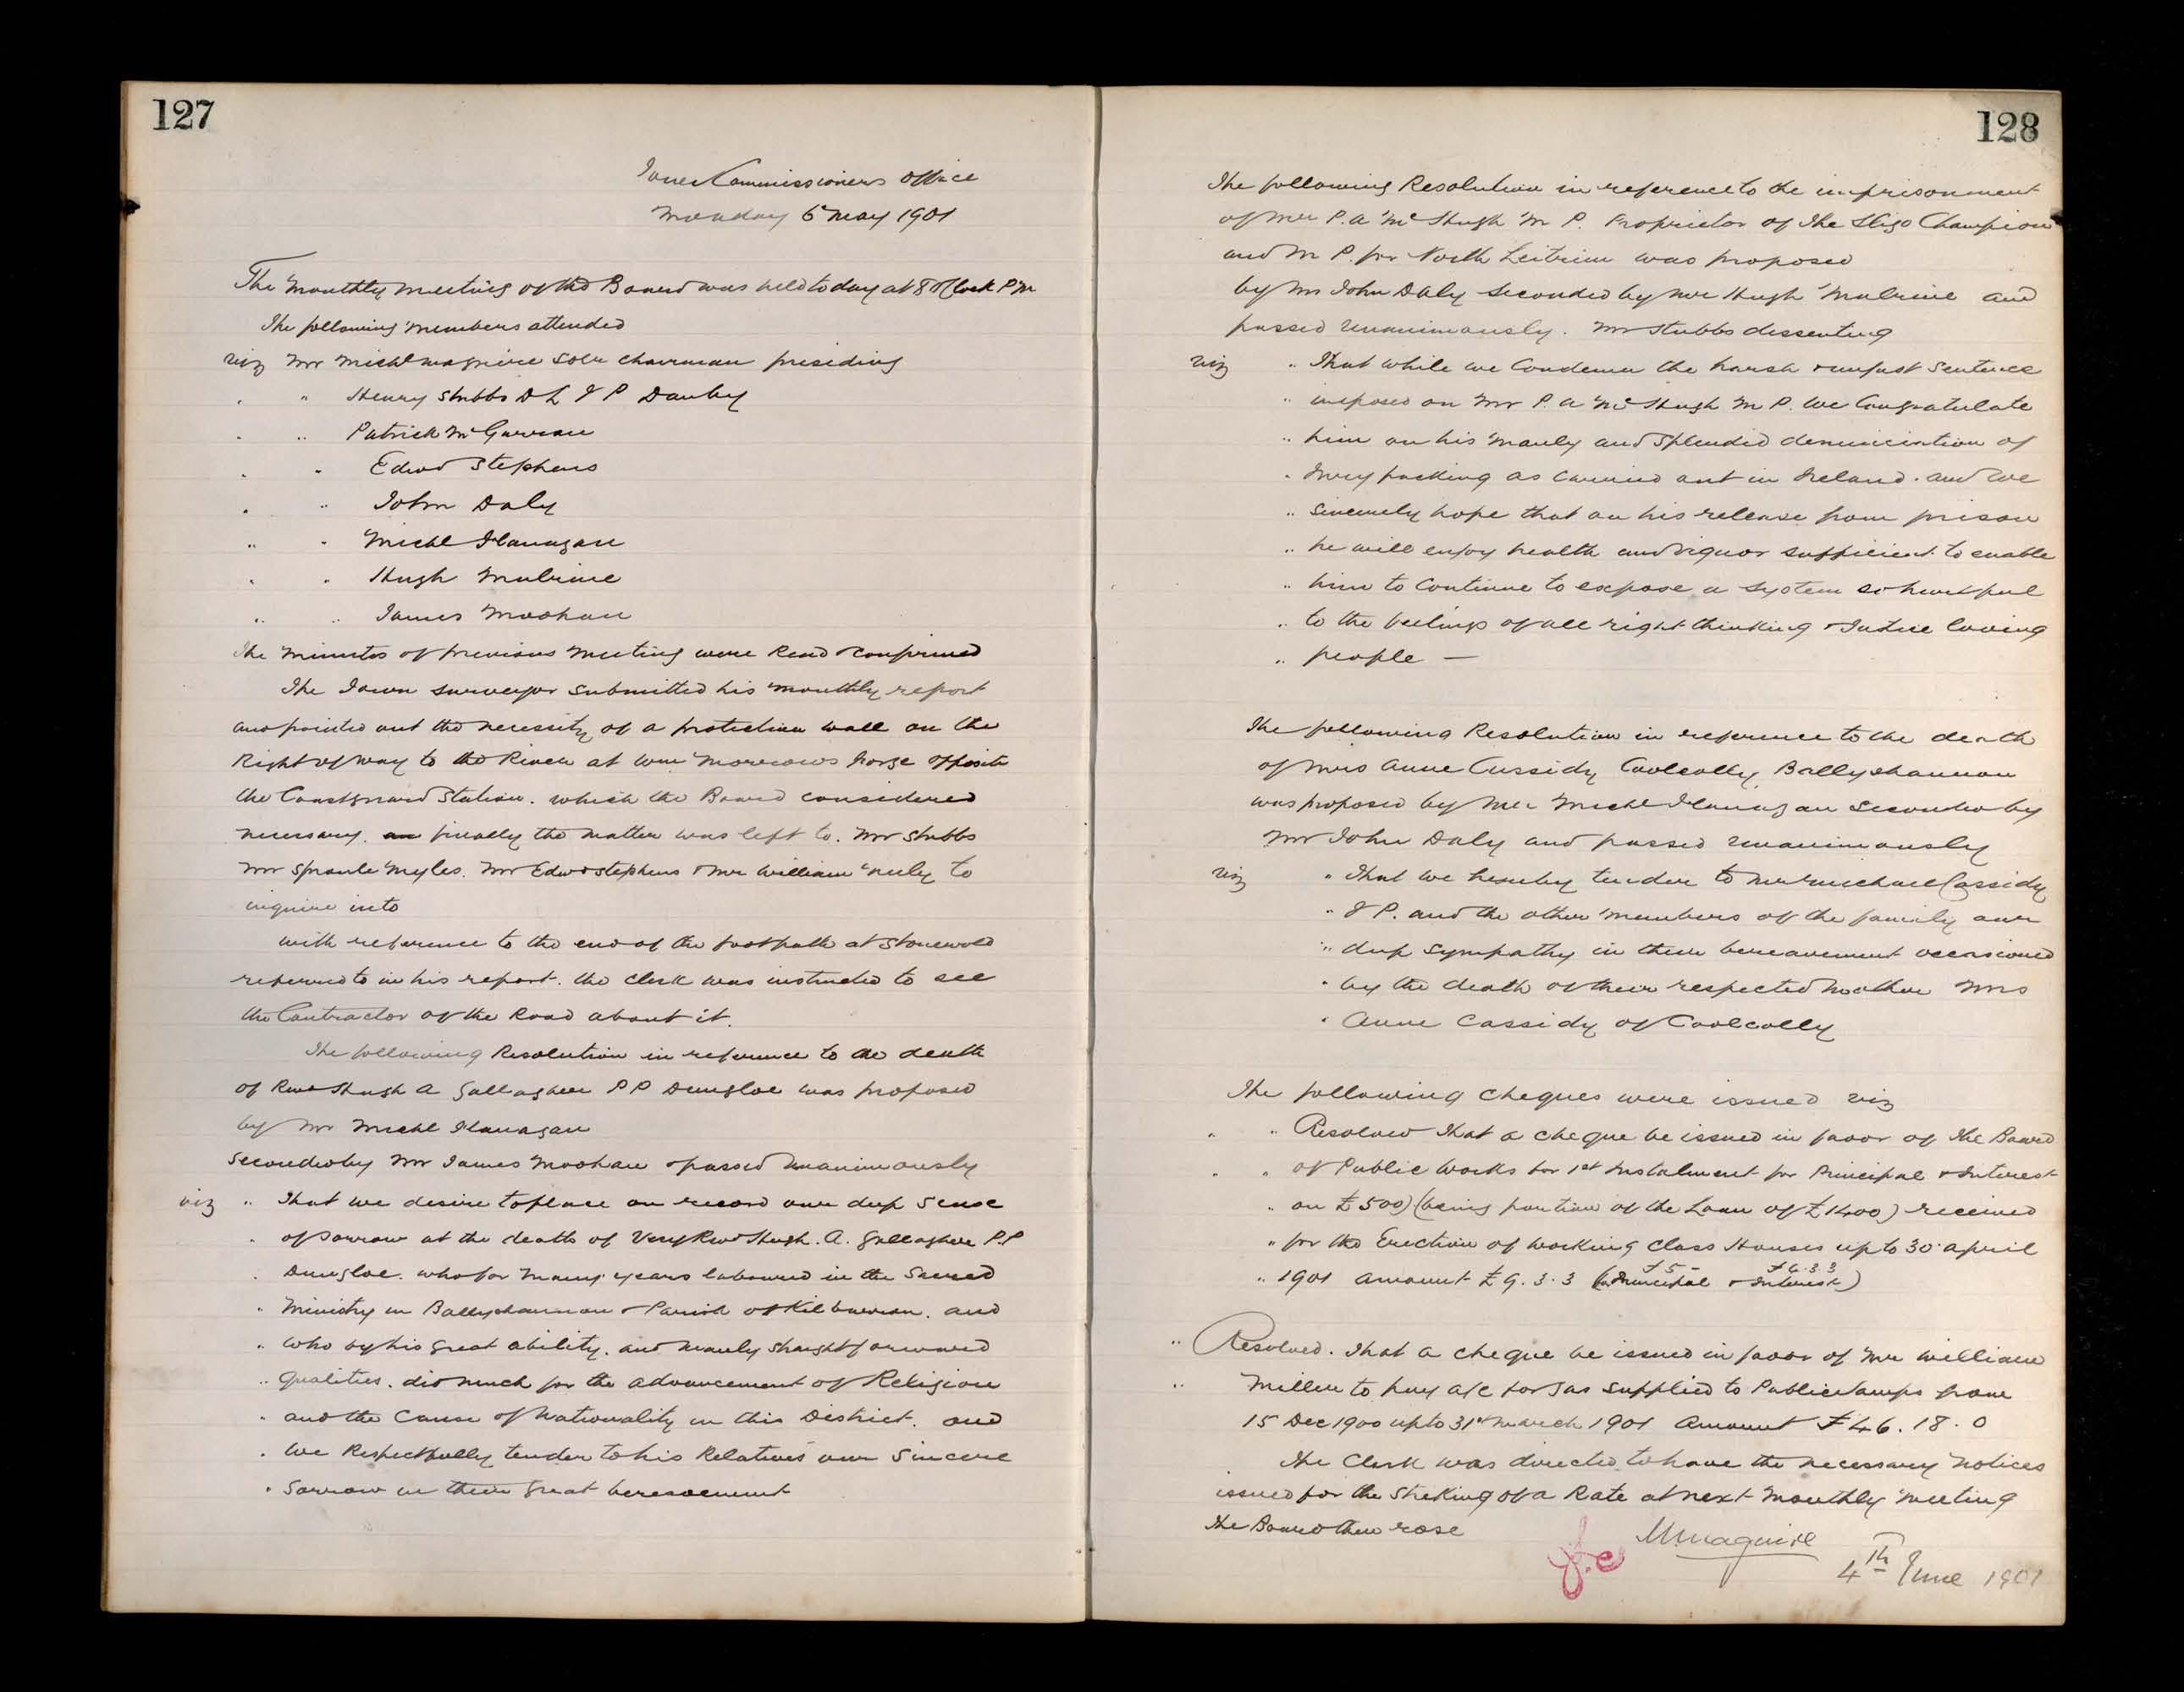 127
Town Commissioners Office
Monday 6th May 1901
The Monthly Meeting of the Board was held today at 8 O'Clock P.M
The following Members attended
viz Mr Michl Maguire Solr Chairman presiding
" " Henry Stubbs D L J P Danby
" " Patrick McGurran
" " Edwd Stephens
" " John Daly
" " Michl Flanagan
" " Hugh Mulrine
" " James Moohan
The Minutes of previous Meeting were Read & Confirmed
The Town Surveyor Submitted his Monthly report
and pointed out the necessity of a protection wall on the
Right of way to the River at Wm Morrows forge opposite
the Coastguard Station. which the Board considered
necessary. finally the matter was left to. Mr Stubbs
Mr Sproule Myles. Mr Edwd Stephens & Mr William Neely to
inquire into
with reference to the end of the footpath at Stonewold
referred to in his report. the Clerk was instructed to see
the Contractor of the Road about it.
The following Resolution in reference to the death
of Revd Hugh A Gallagher P P Dungloe was proposed
by Mr Michl Flanagan
Seconded by Mr James Moohan & passed Unanimously
viz " That we desire to place on record our deep Sense
" of Sorrow at the death of Very Revd Hugh. A. Gallagher P.P
" Dungloe. who for many years laboured in the Sacred
" Ministry in Ballyshannon & Parish of Kilbarron. and
" who by his great ability. and manly straightforward
" qualities. did much for the advancement of Religion
" and the Cause of Nationality in this District. and
" we Respectfully tender to his Relatives our Sincere
" Sorrow in their great bereavement
128
The following Resolution in reference to the imprisonment
of Mr P. A McHugh M P. Proprietor of The Sligo Champion
and M P. for North Leitrim was proposed
by Mr John Daly Seconded by Mr Hugh Mulrine and
passed Unanimously. Mr Stubbs dissenting
viz " That while we Condemn the harsh & unjust Sentence
" imposed on Mr P. A McHugh M P. We Congratulate
" him on his Manly and Splendid denunciation of
" Jury packing as Carried out in Ireland. and we
" Sincerely hope that on his release from prison
" he will enjoy health and viguor sufficient to enable
" him to Continue to expose a system so hurtful
" to the feelings of all right thinking & Justice loving
" people —
The following Resolution in reference to the death
of Mrs Anne Cassidy Coolcolly, Ballyshannon
was proposed by Mr Michl Flanagan Seconded by
Mr John Daly and passed Unanimously
viz " That we hereby tender to Mr Michael Cassidy
" J P. and the other Members of the family our
" deep Sympathy in their bereavement occasioned
" by the death of their respected Mother Mrs
" Anne Cassidy of Coolcolly
The following Cheques were issued viz
" " Resolved That a cheque be issued in favor of the Board
" " of Public Works for 1st Instalment for Principal & Interest
" on £500) (being portion of the Loan of £1400) received
" for the Erection of Working Class Houses up to 30th April
" 1901 Amount £9. 3. 3 (£5 – Principal & £4.3.3 Interest)
" Resolved. That a cheque be issued in favor of Mr William
" Miller to pay a/c for Gas Supplied to Public Lamps from
15 Dec 1900 up to 31st March 1901 Amount £46. 18. 0
The Clerk was directed to have the necessary Notices
issued for the Striking of a Rate at next Monthly Meeting
The Board then rose
M Maguire
4th June 1901